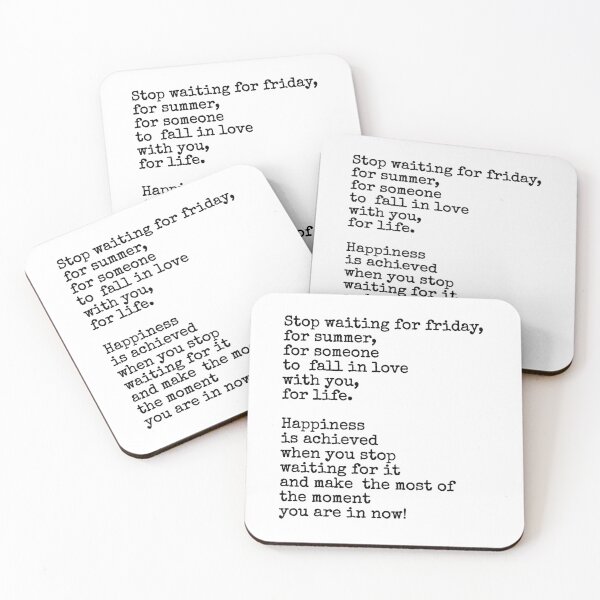 Stop waiting for friday,
for summer,
for someone
to fall in love
with you,
for life.
of
Stop waiting for friday,
for summer,
for someone
to fall in love
with you,
for life.
Happiness
is achieved
when you stop
waiting for it
Stop waiting for friday,
for summer,
for someone
to fall in love
with you,
for life.
Happiness
is achieved
when you stop
waiting for it
and make the mos
the moment
you are in now
Stop waiting for friday,
for summer,
for someone
to fall in love
with you,
for life.
Happiness
is achieved
when you stop
waiting for it
and make the most of
the moment
you are in now!